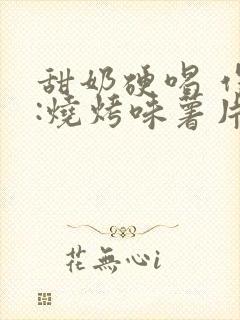 甜奶硬唱
:燒烤味薯片
花無心i